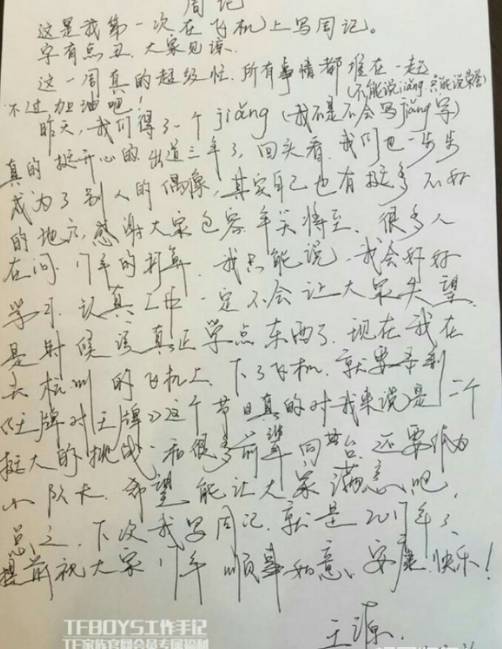 周记
这是我第一次在飞机上写周记。
字有点丑，大家见谅。
这一周真的超级忙，所有事情都堆在一起
(不能说jiǎng,只能说荣誉)
不过加油吧！
昨天，我们得了一个jiǎng (我不是不会写jiǎng字)
真的挺开心的出道三年了，回头看，我们也一步步
成为了别人的偶像，其实自己也有挺多不好
的地方，感谢大家包容，年关将至，很多人
在问17年的打算，我只能说，我会好好
学习，认真工作，一定不会让大家失望，
是时候该真正学点东西了，现在我在
去杭州的飞机上，下了飞机，就要录制
《王牌对王牌》这个节目真的对我来说是一个
挺大的挑战，和很多前辈同台，还要作为
小队长，希望能让大家满意吧，
总之，下次我写周记，就是2017年了，
提前祝大家17年顺事如意，安康，快乐！
王源.
TFBOYS工作手记
TF家族官网会员专属福利